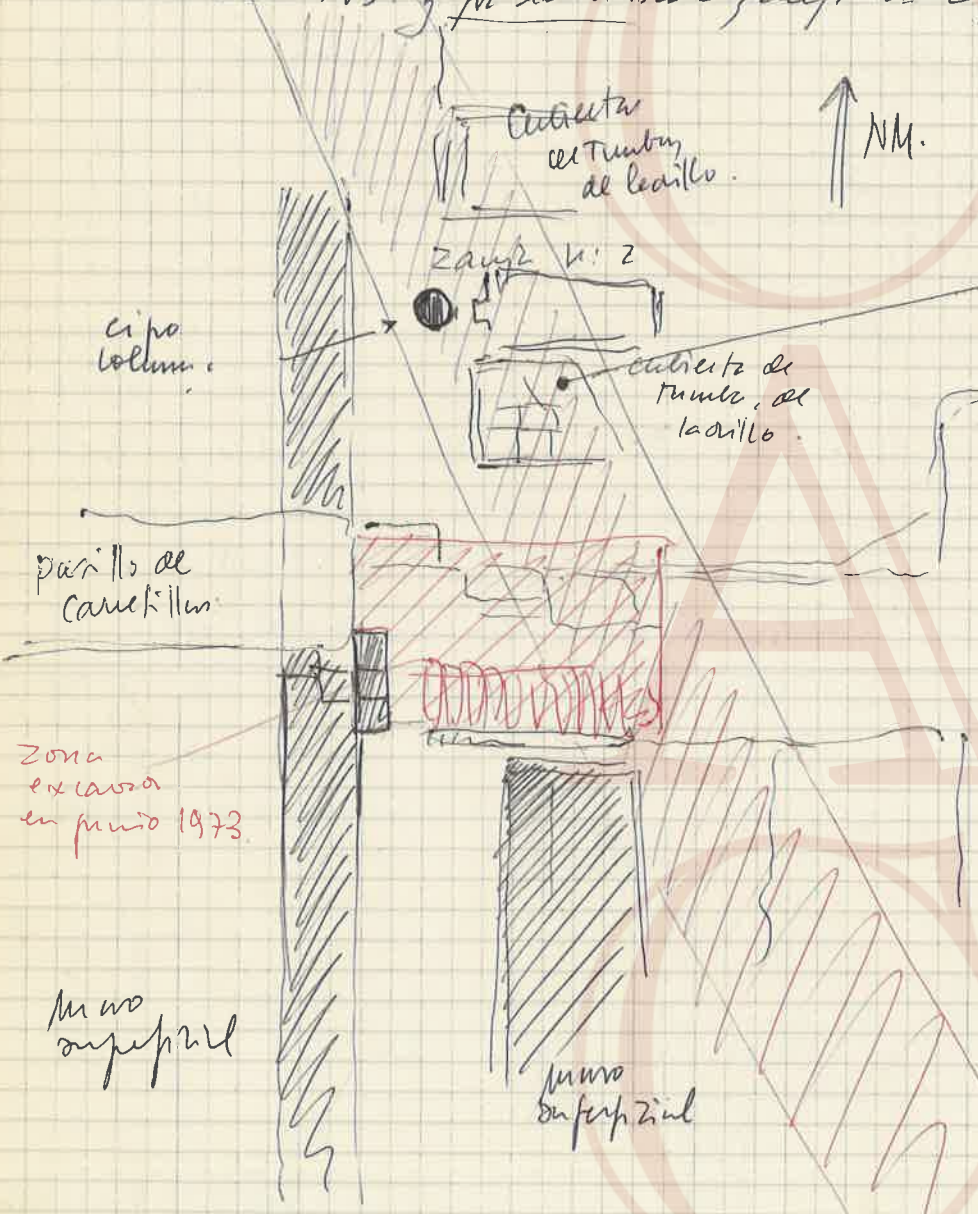 NM.
Cubierta
de Tumba
de ladrillo.
Zanja n: 2
cipo
column.
cubierta de
tumba, de
ladrillo.
pasillo de
carretillas
Zona
excavada
en junio 1973
muro
superficial
muro
superficial